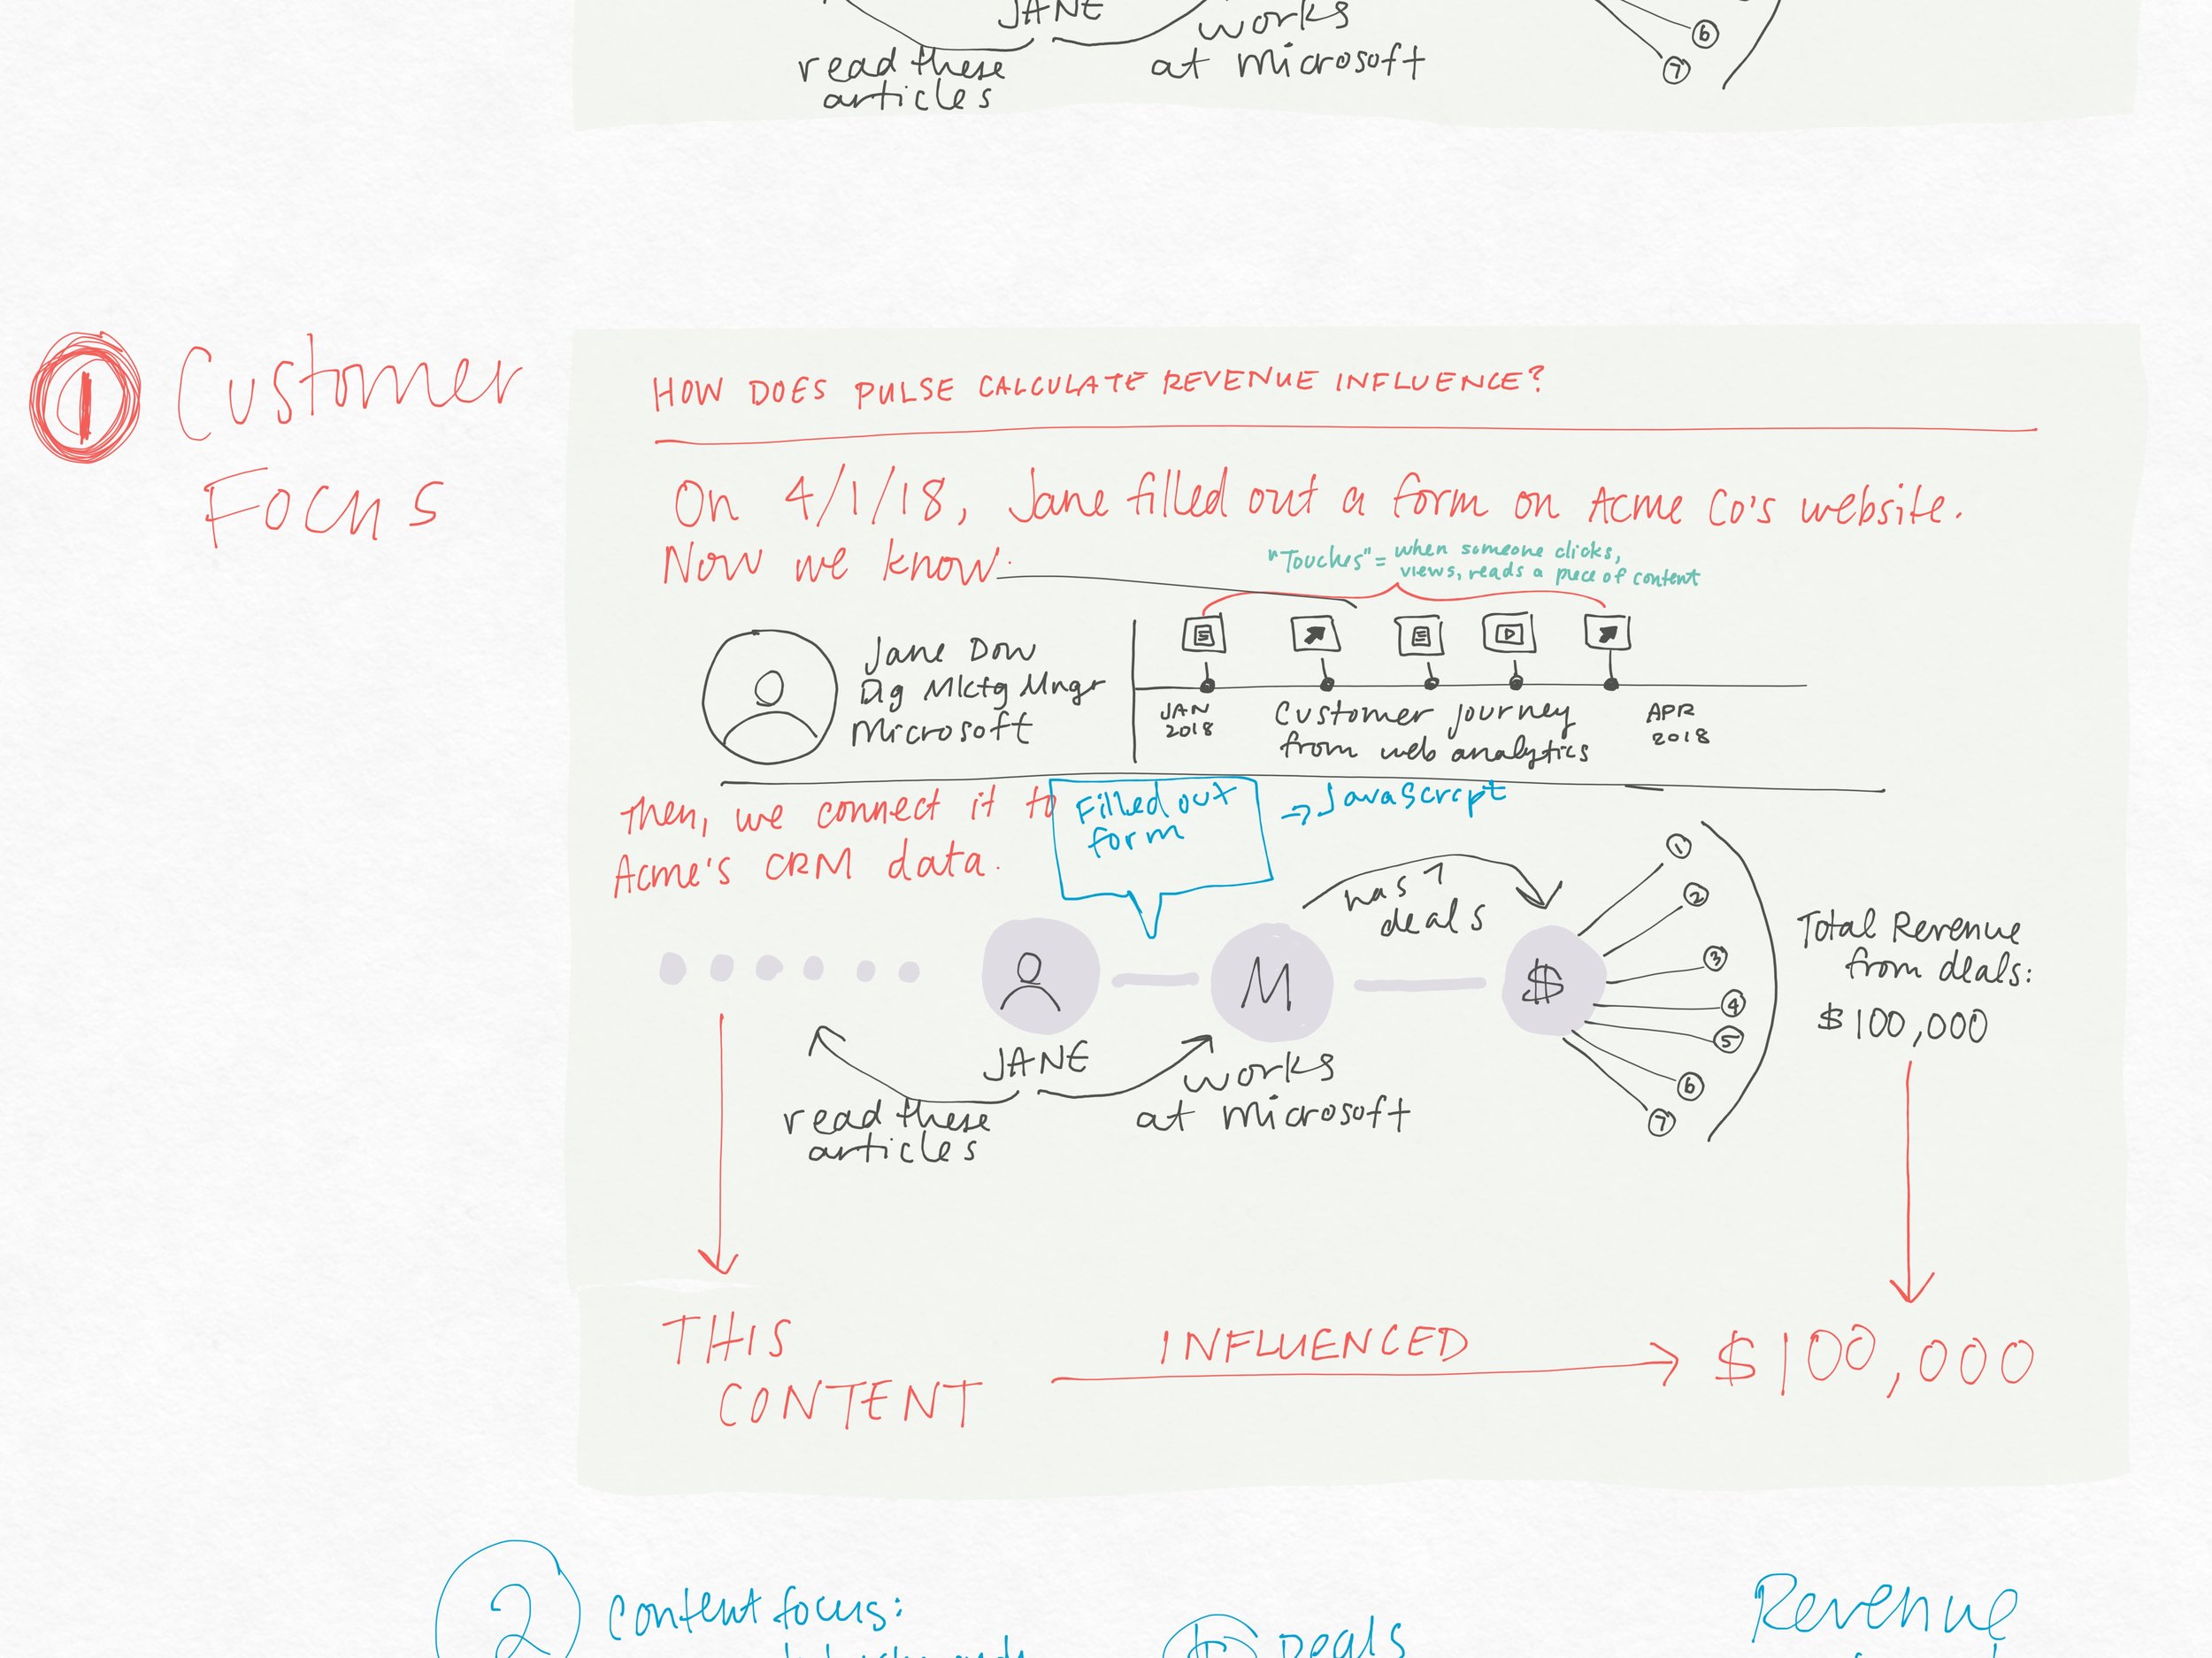 JANE
works
read these
at microsoft
articles
6
7
1 Customer
Focus
HOW DOES PULSE CALCULATE REVENUE INFLUENCE?
On 4/1/18, Jane filled out a form on Acme Co's website.
Now we know:
"Touches" = when someone clicks,
views, reads a piece of content
Jane Dow
Dig Mktg Mngr
Microsoft
JAN
2018
Customer journey
from web analytics
APR
2018
Then, we connect it to
Acme's CRM data.
Filled out
form
→ JavaScript
has 7
deals
M
$
1
2
3
4
5
6
7
Total Revenue
from deals:
$100,000
JANE
read these
articles
works
at microsoft
THIS
CONTENT
INFLUENCED
$100,000
2 Content focus:
Deals
Revenue